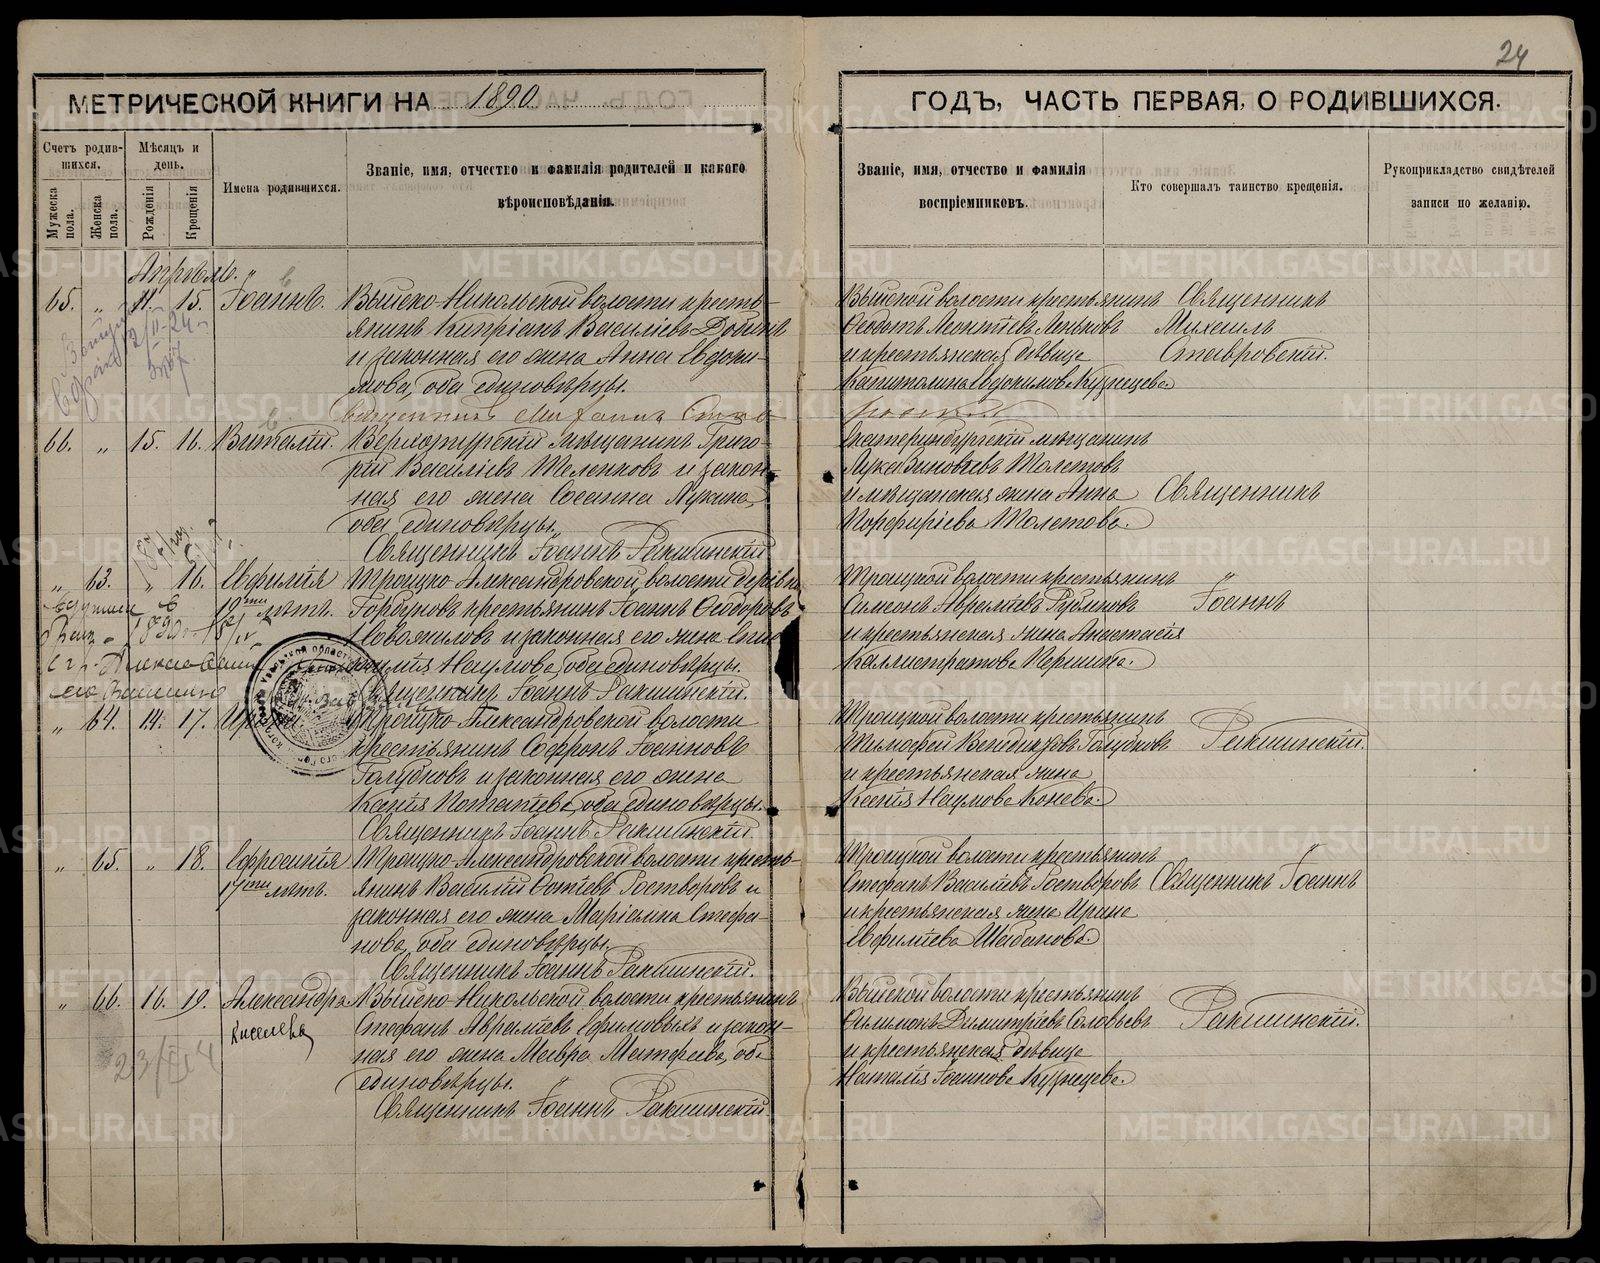 24
МЕТРИЧЕСКОЙ КНИГИ НА 1890
ГОДЪ, ЧАСТЬ ПЕРВАЯ, О РОДИВШИХСЯ.
Счетъ родившихся.
Мужеска пола.
Женска пола.
Мѣсяцъ и день.
Рожденія
Крещенія
Имена родившихся.
Званіе, имя, отчество и фамилія родителей и какого
вѣроисповѣданія.
Званіе, имя, отчество и фамилія
воспріемниковъ.
Кто совершалъ таинство крещенія.
Рукоприкладство свидѣтелей
записи по желанію.
Апрѣль.
65. " 11. 15. Іоаннъ.
Выйско-Никольской волости кресть-
янинъ Кипріанъ Василіевъ
и законная его жена Анна Евдоки-
мова, оба единовѣрцы.
Выйской волости крестьянинъ
Ѳеодотъ Леонтіевъ Леньковъ
и крестьянская дѣвица
Капитолина Евдокимова Кузнецова.
Священникъ
Михаилъ
Ставровскій.
66. " 15. 16. Виталій.
Верхотурскій мѣщанинъ Григо-
рій Василіевъ и закон-
ная его жена Сосанна Лукина,
оба единовѣрцы.
Священникъ Іоаннъ Ракшинскій
Екатеринбургскій мѣщанинъ
Лука Зиновіевъ Толстовъ
и мѣщанская жена Анна
Порфиріева Толстова.
Священникъ
" 63. " 16. Евфимія
Троицко-Александровской волости деревни
Горбуновъ крестьянинъ Іоаннъ Ѳеодоровъ
Новожиловъ и законная его жена
Наумова, оба единовѣрцы.
Священникъ Іоаннъ Ракшинскій.
Троицкой волости крестьянинъ
Симеонъ Авраміевъ Рубцовъ
и крестьянская жена Анастасія
Каллистратова Першина.
Іоаннъ
" 64. 14. 17.
Троицко-Александровской волости
крестьянинъ Софронъ Іоанновъ
Голубковъ и законная его жена
Ксенія Потапіева, оба единовѣрцы.
Священникъ Іоаннъ Ракшинскій.
Троицкой волости крестьянинъ
Тимофей Венедиктовъ Голубковъ
и крестьянская жена
Ксенія Наумова Конева.
Ракшинскій.
" 65. " 18. Евфросинія
Троицко-Александровской волости кресть-
янинъ Василій Растворовъ и
законная его жена Маріамна Стефа-
нова, оба единовѣрцы.
Священникъ Іоаннъ Ракшинскій.
Троицкой волости крестьянинъ
Стефанъ Василіевъ Растворовъ
и крестьянская жена Ирина
Евфиміева Шабанова.
Священникъ Іоаннъ
" 66. 16. 19. Александра
Киселева
Выйско-Никольской волости крестьянинъ
Стефанъ Авраміевъ Ефимовыхъ и закон-
ная его жена Мавра Матфеева, оба
единовѣрцы.
Священникъ Іоаннъ Ракшинскій
Выйской волости крестьянинъ
Филимонъ Димитріевъ Соловьевъ
и крестьянская дѣвица
Наталія Іоаннова Кузнецова.
Ракшинскій.
METRIKI.GASO-URAL.RU